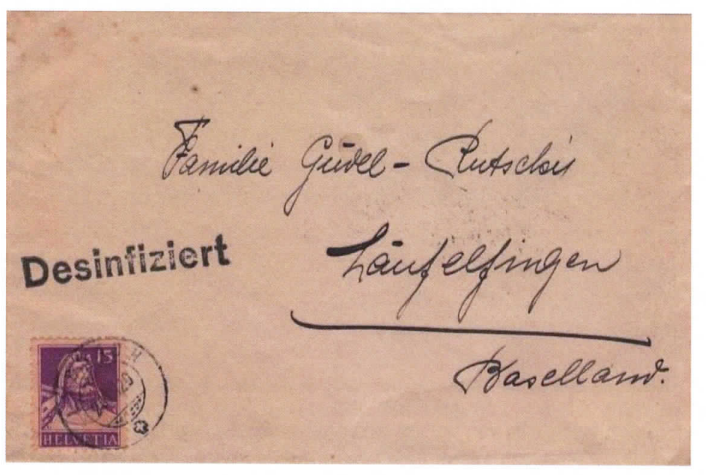 Familie Güdel - Rutschi
Desinfiziert
Läufelfingen
Baselland.
15
HELVETIA